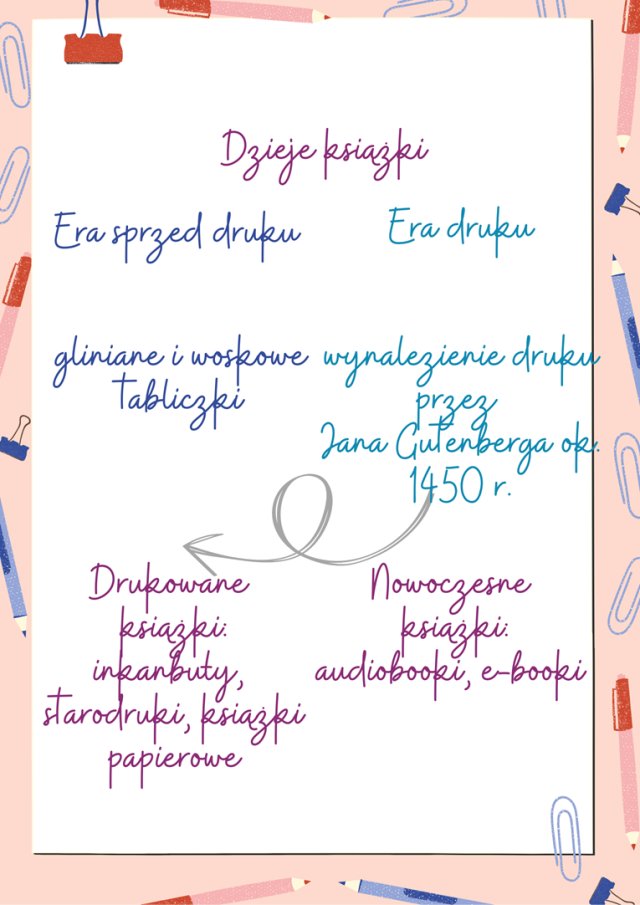 Dzieje książki
Era sprzed druku
Era druku
gliniane i woskowe
tabliczki
wynalezienie druku
przez
Jana Gutenberga ok.
1450 r.
Drukowane
książki:
inkanbuty,
starodruki, książki
papierowe
Nowoczesne
książki:
audiobooki, e-booki